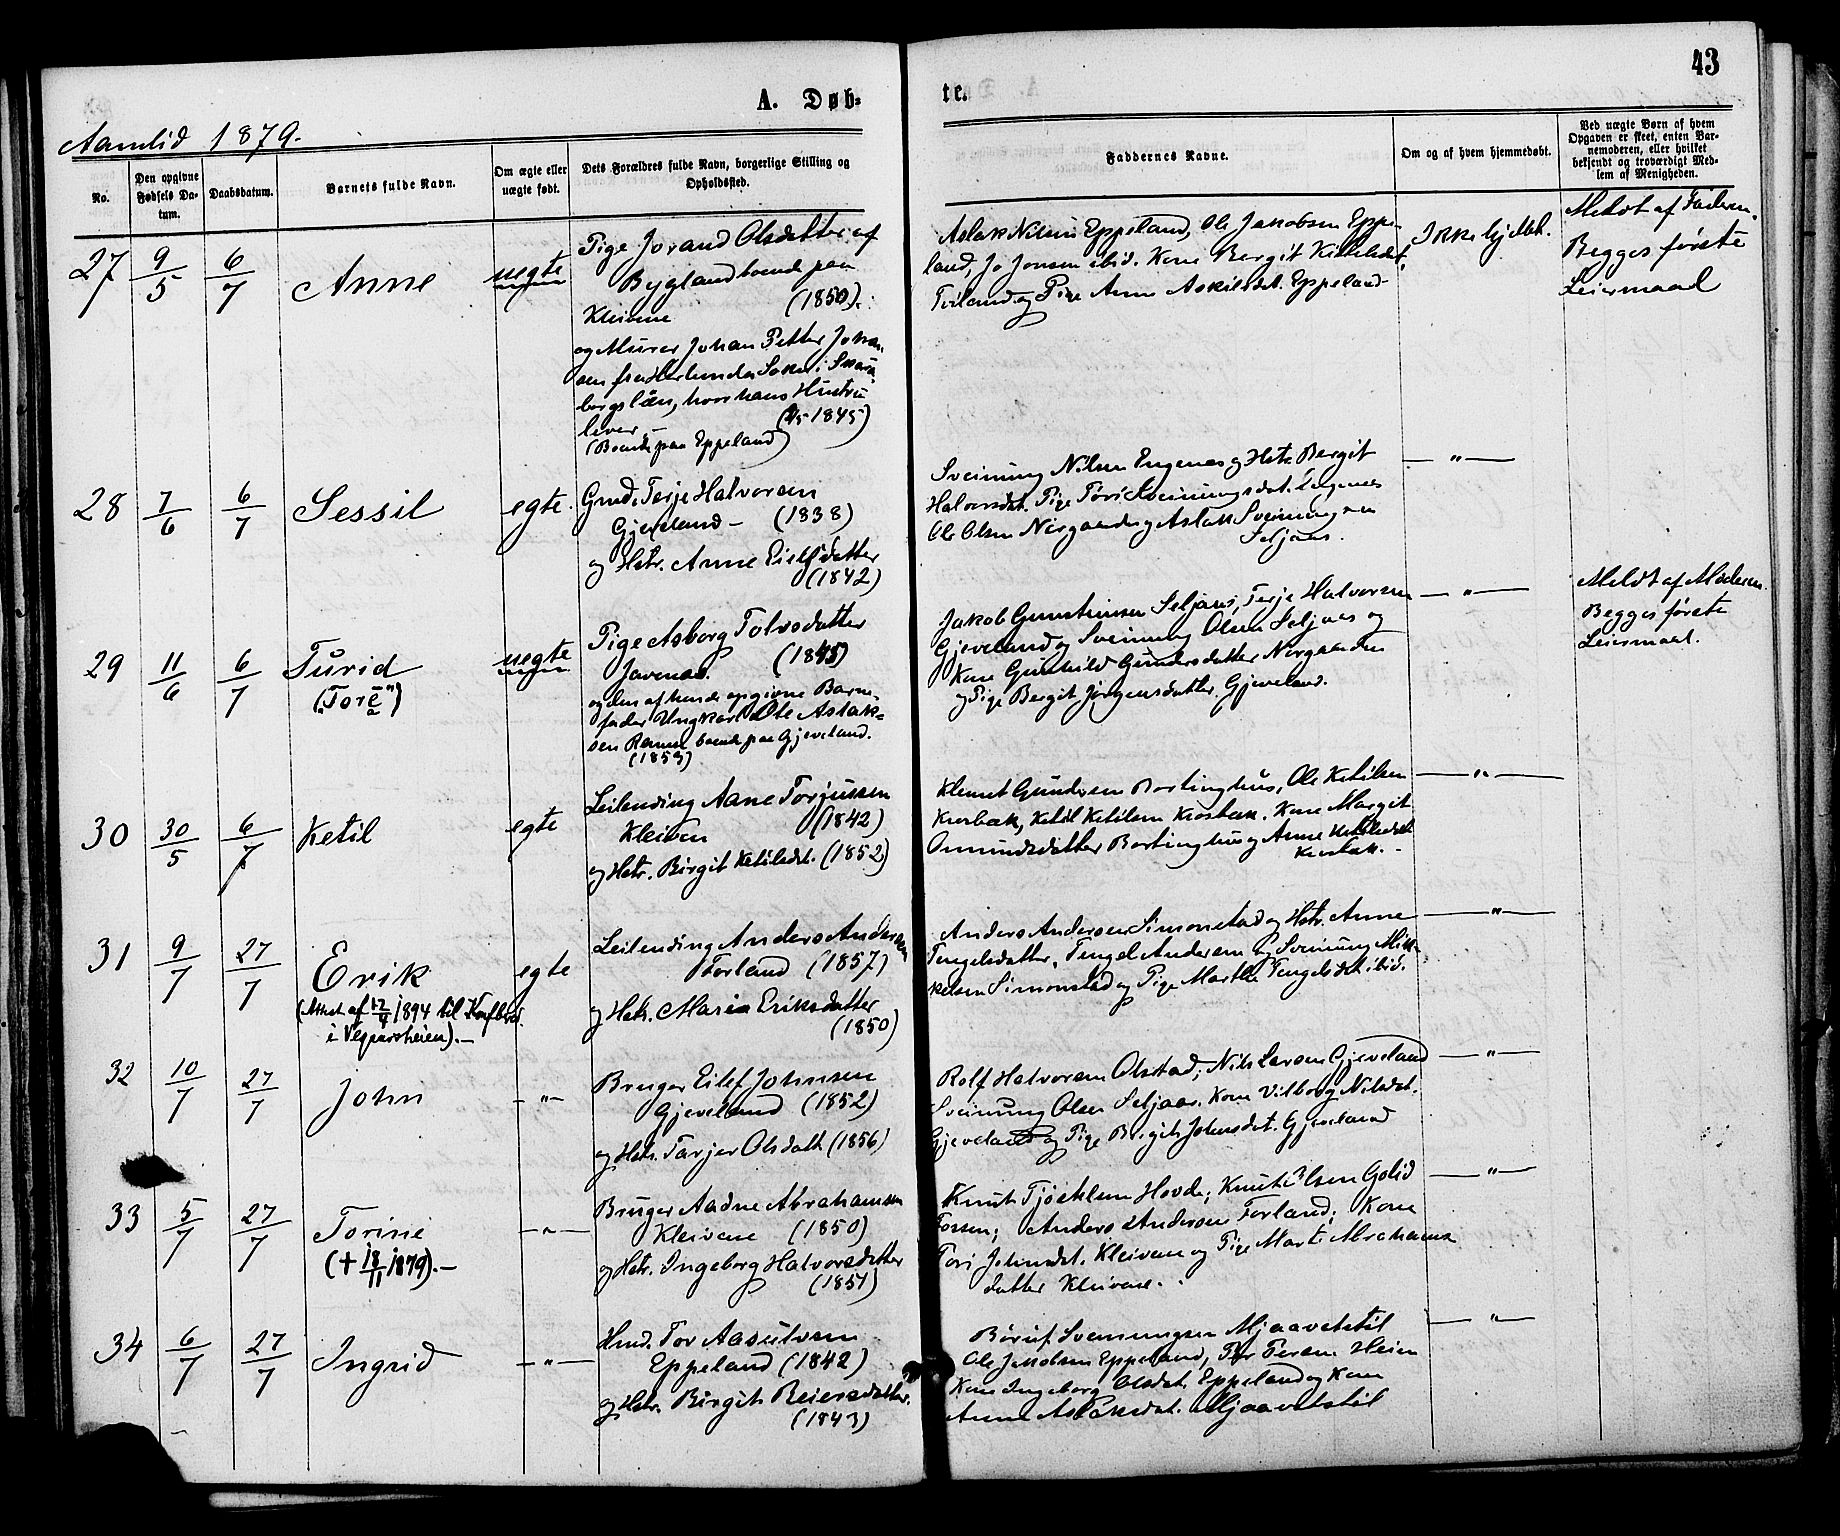 43
A. Døb-
te.
Aamlid 1879.
No.
Den opgivne Fødsels Da-tum.
Daabsdatum.
Barnets fulde Navn.
Om ægte eller uægte født.
Dets Forældres fulde Navn, borgerlige Stilling og Opholdssted.
Faddernes Navne.
Om og af hvem hjemmedøbt.
Ved uægte Børn af hvem Opgaven er skeet, enten Bar-nemoderen, eller hvilket bekjendt og troværdigt Med-lem af Menigheden.
27 9/5 6/7 Anne uegte
Pige Jorand Olsdatter af
Bygland boende paa
Kleivene (1850).
og Murer Johan Petter Johan-
sen fra Herlunda Sokn i Skara-
bergslän, hvor hans Hustru
lever - (1845)
(Boende paa Eppeland)
Aslak Nilsen Eppeland, Ole Jakobsen Eppe-
land, Jo Jonsen ibid. Kone Bergit Kittilsdat.
og Pige Anne Askilsdat. Eppeland-
Ikke hjdbt.
Meldt af Faderen.
Begges første
Leiermaal
28 7/6 6/7 Sessil egte.
Gmd. Terje Halvorsen
Gjeveland - (1838)
og Hstr. Anne Eilefsdatter
(1842)
Sveinung Nilsen Engenes og Hstr. Bergit
Halvorsdat. Pige Tori Sveinungsdat. Engenes
Ole Olsen Norgaarden og Aslak Sveinungsen
Seljaas.
— " —
29 11/6 6/7 Turid
("Tore")
uegte
Pige Asborg Tolvsdatter
Javenæs. (1845)
og den af hende opgivne Barne-
fader Ungkarl Ole Aslak-
sen Ramse boende paa Gjeveland.
(1853)
Jakob Gunsteinsen Seljaas, Terje Halvorsen
Gjeveland og Sveinung Olsen Seljaas og
Kone Gunhild Gundersdatter Norgaarden
og Pige Bergit Jørgensdatter Gjeveland.
— " —
Meldt af Moderen.
Begges første
Leiermaal.
30 30/5 6/7 Ketil egte
Leilending Aane Torjussen
Kleiven (1842)
og Hstr. Birgit Ketilsdat. (1852)
Klemet Gundersen Bortinghus, Ole Ketilsen
Krosbak, Ketil Ketilsen Krosbak. Kone Margit
Omundsdatter Bortinghus og Anne Ketilsdat
Krosbak. -
— " —
31 9/7 27/7 Erik
(Attest af 12/4 1894 til Kirkebrug
i Vegaarsheien). -
egte
Leilending Anders Andersen
Torland (1857)
og Hstr. Maria Eriksdatter
(1850)
Anders Andersen Simonstad og Hstr. Anne
Tengelsdatter, Tengel Andersen og Sveinung Mik-
kelsen Simonstad og Pige Marthe Tengelsdat ibid.
— " —
32 10/7 27/7 John - " -
Bruger Eilef Johnsen
Gjeveland (1852)
og Hstr. Tarjer Olsdatt (1856)
Rolf Halvorsen Olstad; Nils Larsen Gjeveland
Sveinung Olsen Seljaas. Kone Vilborg Nilsdat.
Gjeveland og Pige Birgit Johnsdat. Gjeveland
— " —
33 5/7 27/7 Torine
(+ 18/11 1879). -
- " -
Bruger Aadne Abrahamsen
Kleivene (1850)
og Hstr. Ingeborg Halvorsdatter
(1851)
Knut Hovde; Knut Olsen Golid
Fossen; Anders Andersen Torland; Kone
Tori Johnsdat. Kleivene og Pige Marte Abrahams-
datter Kleivene.
— " —
34 6/7 27/7 Ingrid - " -
Hmd. Tor Aasulvsen
Eppeland (1842)
og Hstr. Birgit Reiersdatter.
(1843)
Børuf Sveinungsen Mjaavatstöl
Ole Jakobsen Eppeland, Tor Tersen Heien
Kone Ingeborg Olsdat. Eppeland og Kone
Anne Aslaksdat. Mjaavatstöl
— " —